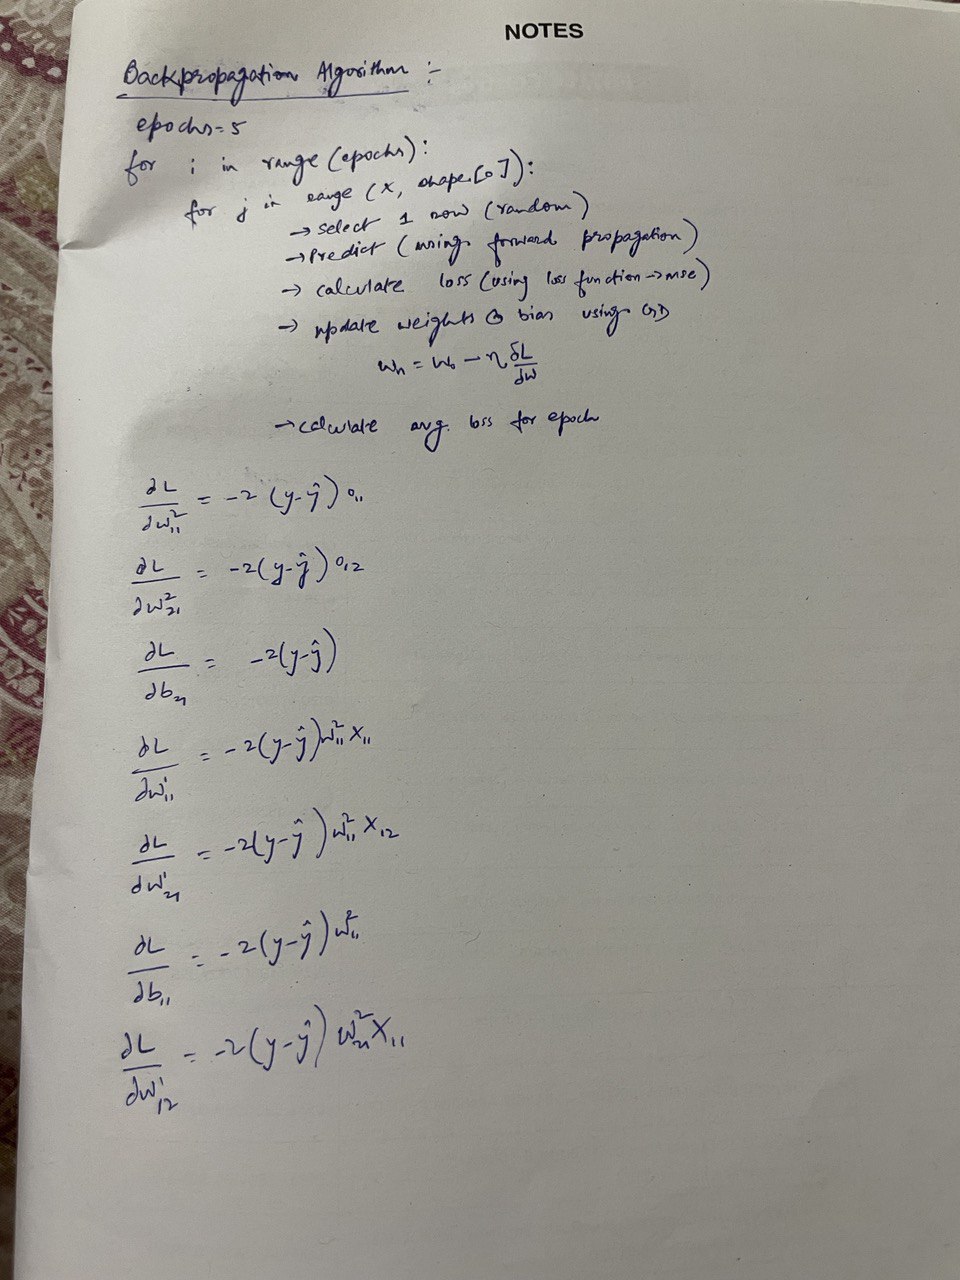 NOTES
Backpropagation Algorithm :-
epochs=5
for i in range (epochs):
for j in range (X, shape[0]):
→ select 1 row (random)
→ Predict (using forward propagation)
→ calculate loss (using loss function → mse)
→ update weights & bias using GD
Wₙ = W₀ − η ∂L/∂W
→ calculate avg. loss for epoch
∂L/∂W²₁₁ = -2 (y-ŷ) O₁₁
∂L/∂W²₂₁ = -2(y-ŷ) O₁₂
∂L/∂b₂₁ = -2(y-ŷ)
∂L/∂W¹₁₁ = -2(y-ŷ) W²₁₁ X₁₁
∂L/∂W¹₂₁ = -2(y-ŷ) W²₁₁ X₁₂
∂L/∂b₁₁ = -2(y-ŷ) W²₁₁
∂L/∂W¹₁₂ = -2(y-ŷ) W²₂₁ X₁₁